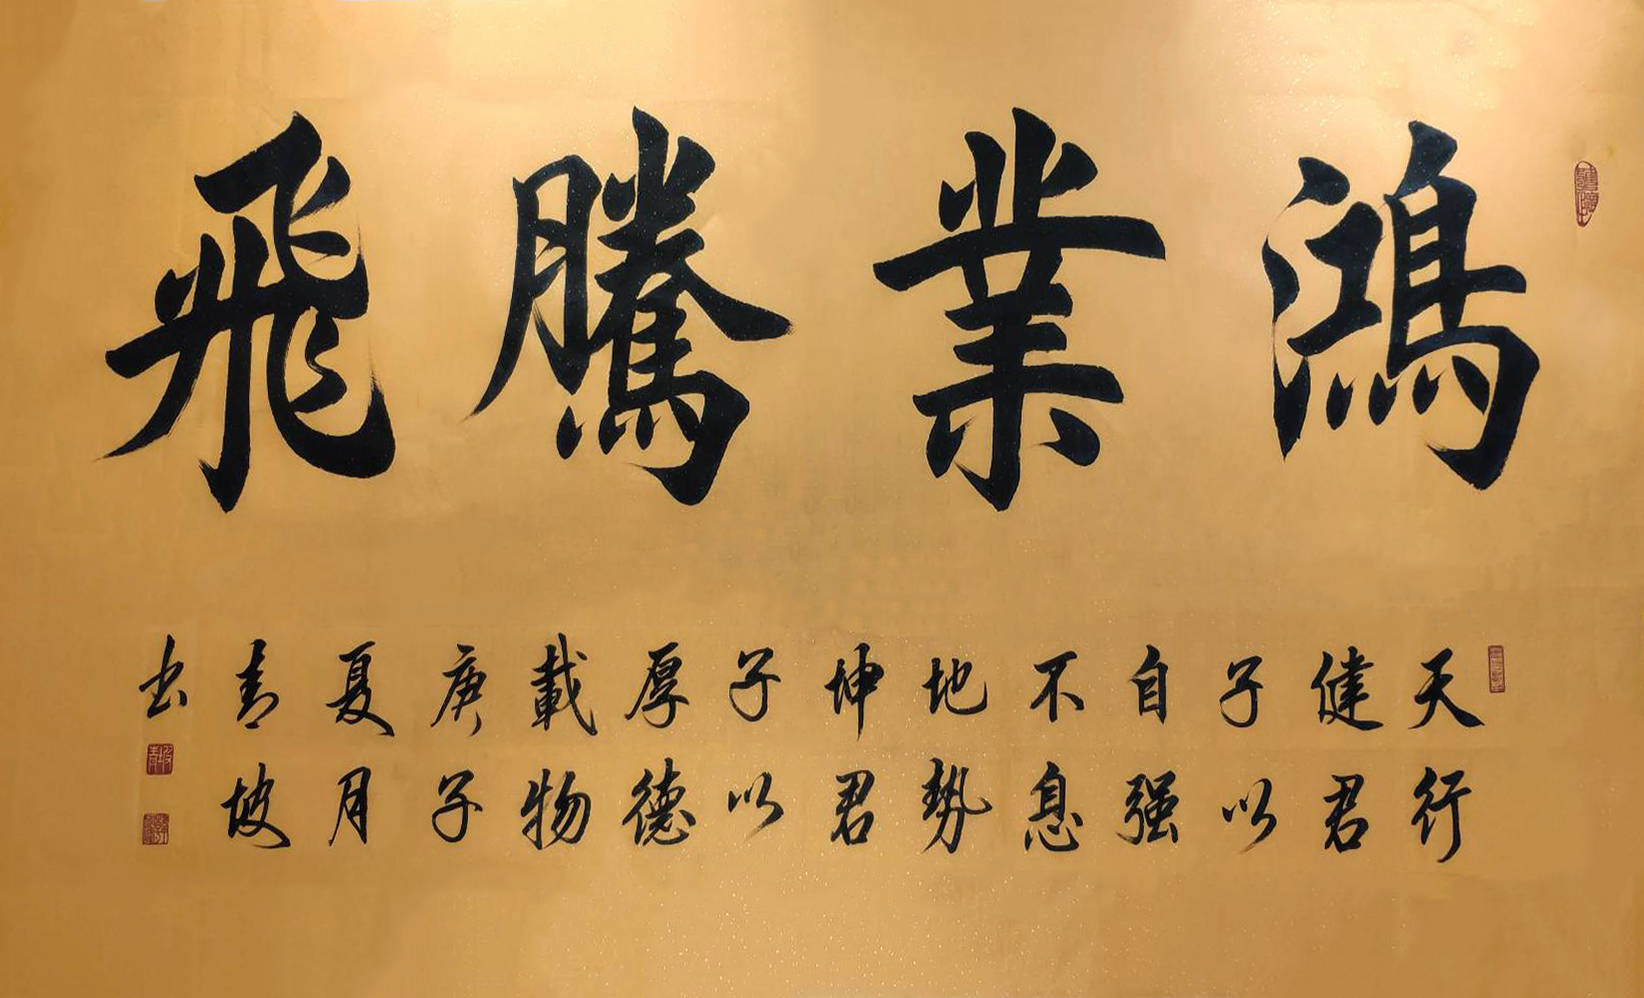 鴻業騰飛
天行
健君
子以
自强
不息
地勢
坤君
子以
厚德
載物
庚子
夏月
青坡
书